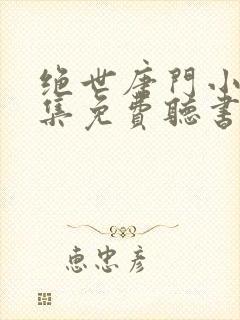 绝世唐門小
集免費聽書
惠忠彦